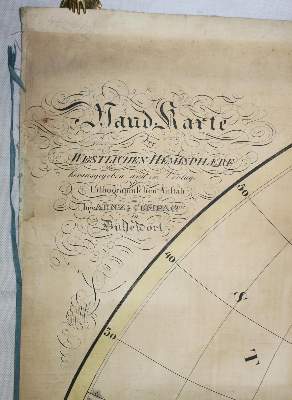 Wand Karte
der
WESTLICHEN HEMISPHÆRE
herausgegeben und im Verlag
der
Lithographischen Anstalt
von ARNZ & COMPAG.
in
Düsseldorf.
50
40
30
S T